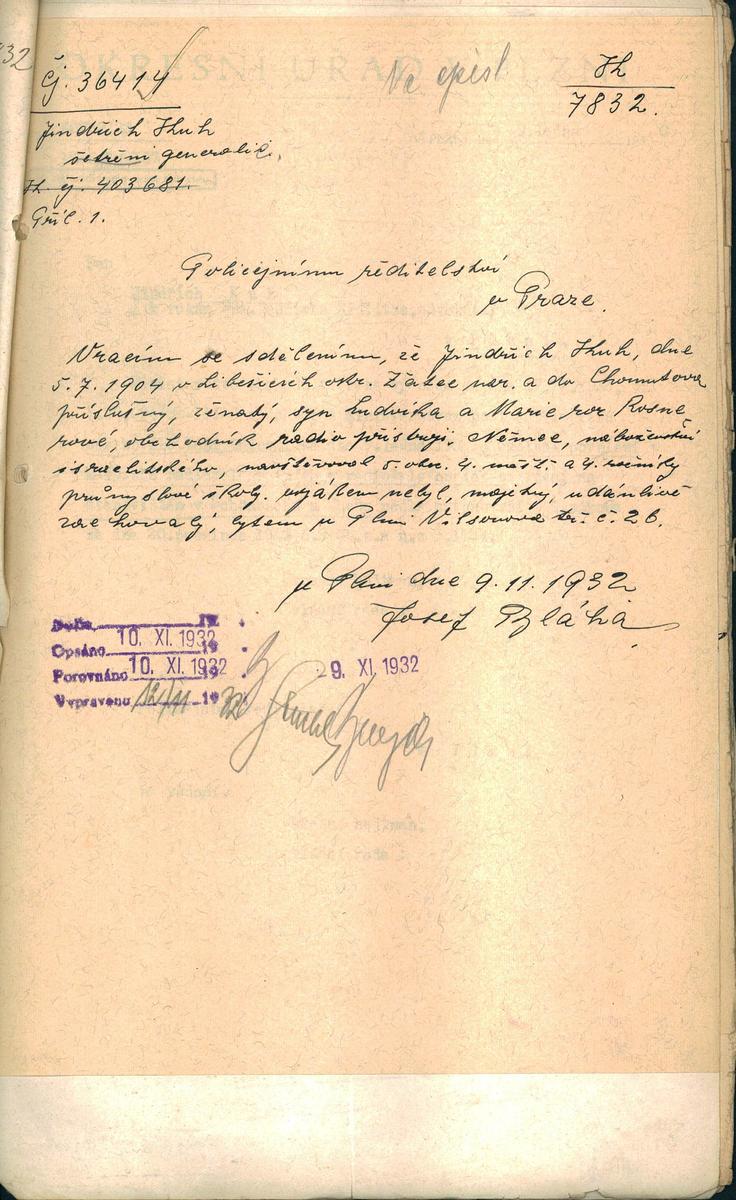 Čj. 36414
Na opis!
Th
7832.
Jindřich Kuh
šetření generalií.
Th čj. 403681.
Příl. 1.
Policejnímu ředitelství
v Praze.
Vracím se sdělením, že Jindřich Kuh, dne
5.7.1904 v Liběšicích okr. Žatec nar. a do Chomutova
příslušný, ženatý, syn Ludvíka a Marie roz Rosne
rové, obchodník radio přístroji, Němec, náboženství
israelitského, navštěvoval 5. obec. 4. měšť. a 4. ročníky
průmyslové školy. vojákem nebyl, majetný, udánlivě
zachovalý, bytem v Plzni Vilsonova tř. č. 26.
v Plzni dne 9.11.1932
Josef Bláha
Došlo 19
Opsáno 10. XI. 1932
Porovnáno 10. XI. 1932
Vypraveno 12/11 1932
9. XI. 1932